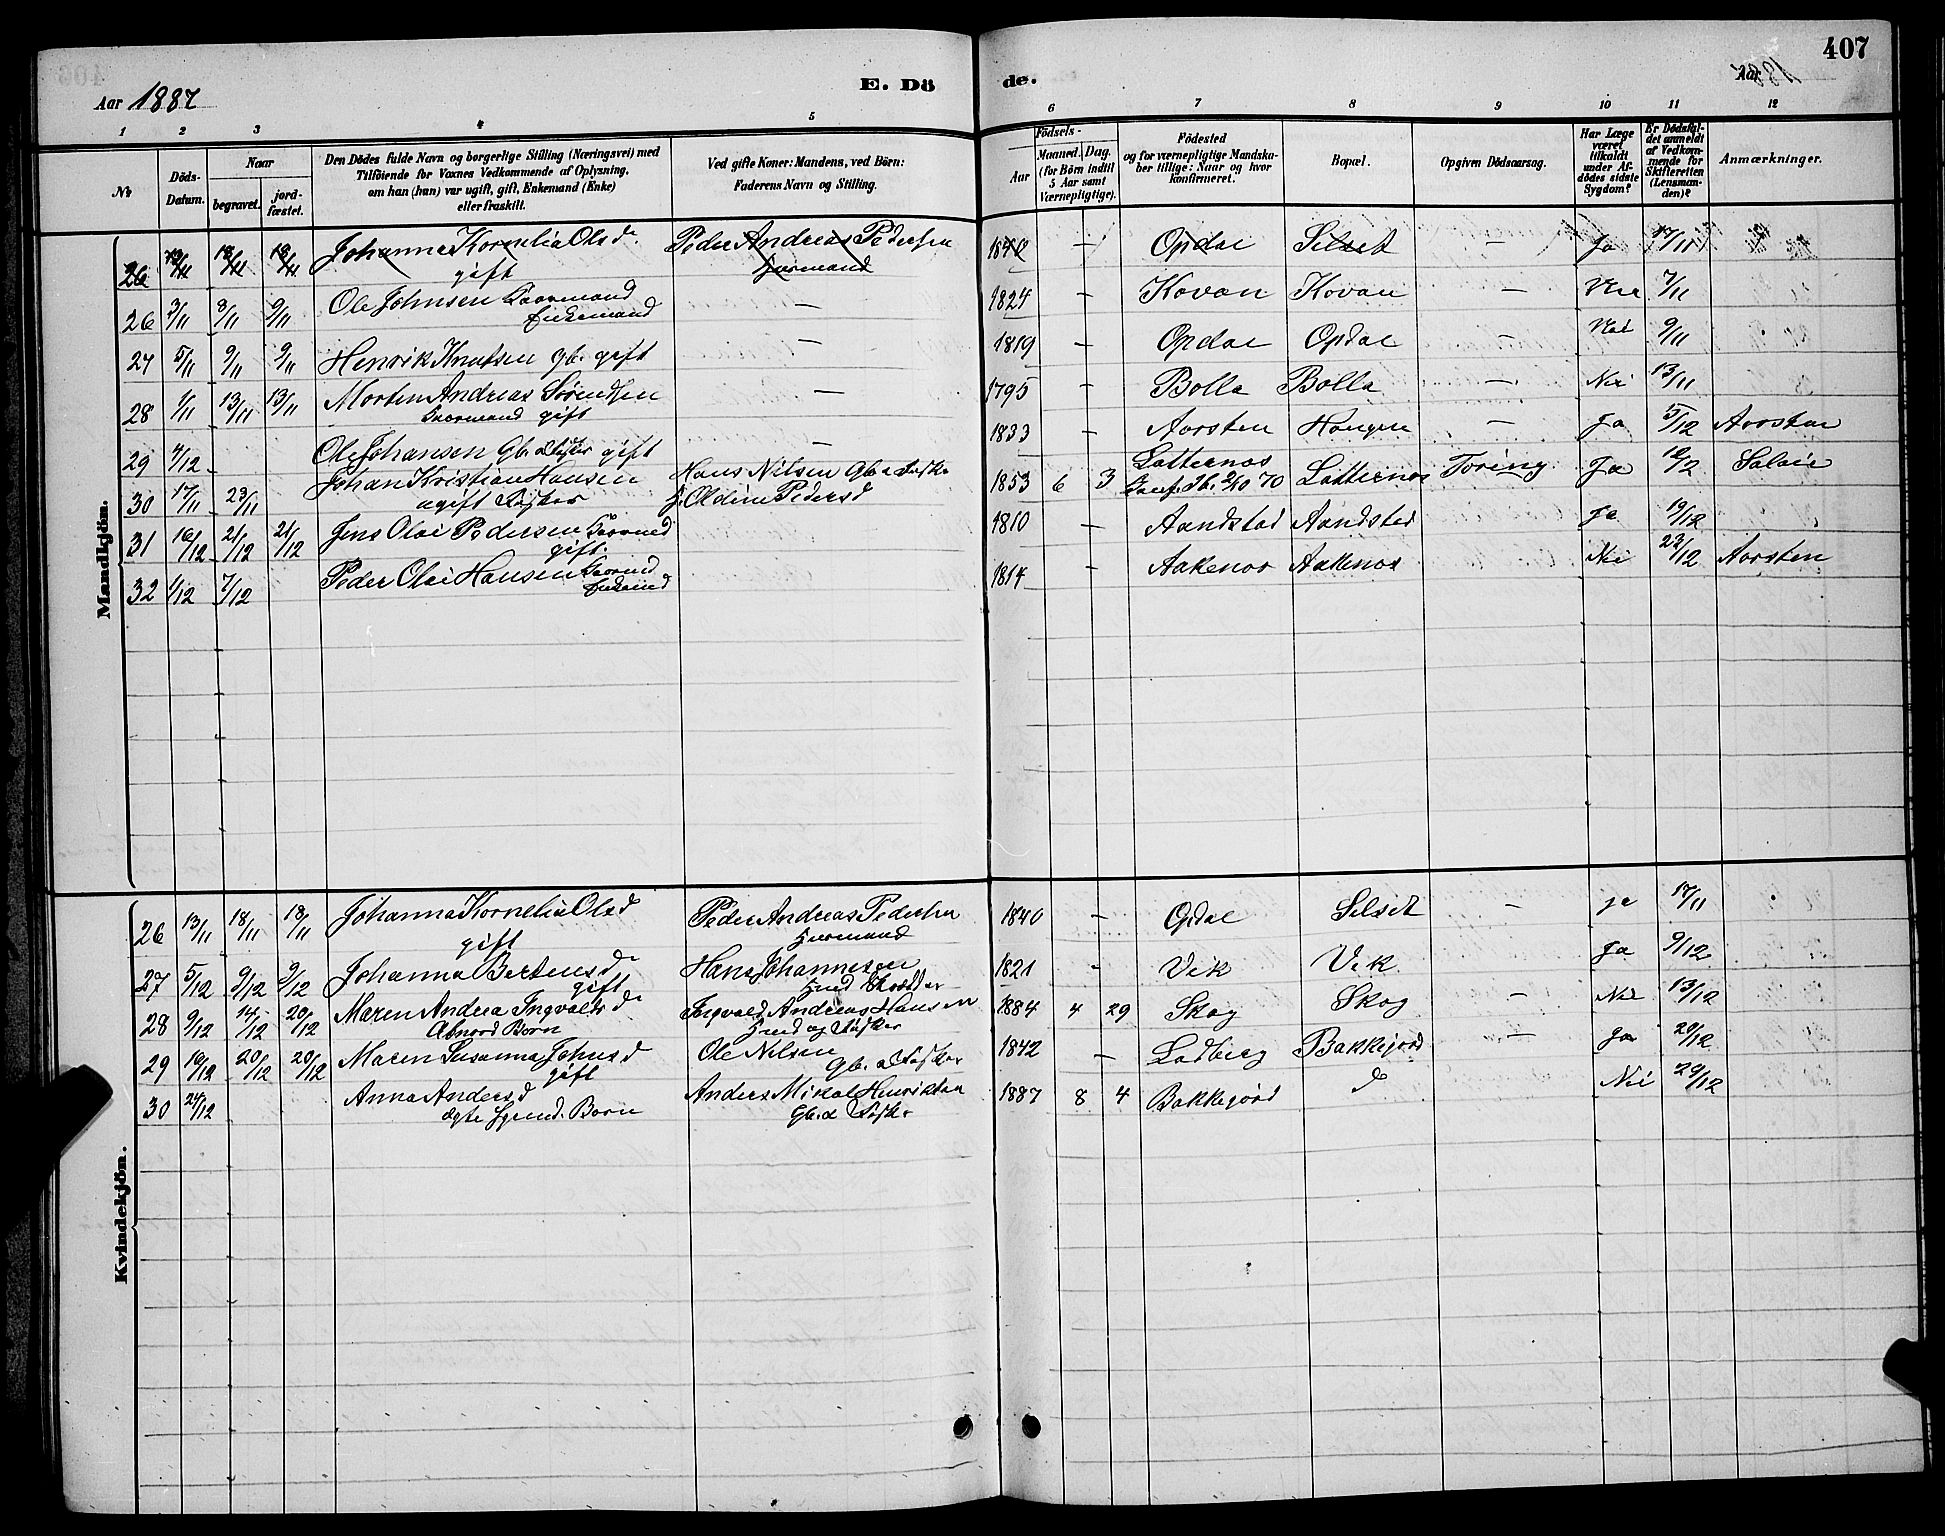 407
Aar 1887
E. Dö
de.
Aar 188
1 2 3 4 5 6 7 8 9 10 11 12
No
Döds-
Datum.
Naar
begravet.
jord-
fæstet.
Den Dödes fulde Navn og borgerlige Stilling (Næringsvei) med
Tilföiende for Voxnes Vedkommende af Oplysning,
om han (hun) var ugift, gift, Enkemand (Enke)
eller fraskilt.
Ved gifte Koner: Mandens, ved Börn:
Faderens Navn og Stilling.
Födsels-
Aar
Maaned. Dag.
(for Börn indtil
5 Aar samt
Værnepligtige).
Födested
og for værnepligtige Mandska-
ber tillige: Naar og hvor
konfirmeret.
Bopæl.
Opgiven Dödsaarsag.
Har Læge
været
tilkaldt
under Af-
dödes sidste
Sygdom?
Er Dödsfal-
det anmeldt
af Vedkom-
mende for
Skifteretten
(Lensman-
den)?
Anmærkninger.
Mandkjön.
26 13/11 18/11 18/11 Johanna Kornelia Olsd. Peder Andreas Pedersen 1840 — Opdal Selset — Ja 17/11
gift
26 3/11 9/11 9/11 Ole Johnsen Kaarmand — 1824 — Kovan Kovan — 7/11
Enkemand
27 5/11 9/11 9/11 Henrik Knutsen Gb. gift — 1819 — Opdal Opdal — Nei 9/11
28 1/11 13/11 13/11 Morten Andreas Sörensen — 1795 — Bolla Bolla — Nei 13/11
Kaarmand gift
29 4/12 Ole Johansen Gb. a Fisker gift — 1833 — Aarsten Haugen — Ja 5/12 Aarsten
30 17/11 23/11 Johan Kristian Hansen Hans Nilsen Gb a Fisker 1853 6 3 Latternos Latternos Toring Ja 12/12
ugift Fisker H. Oldine Pedersd Konf. Ib. 2/10 70
31 16/12 21/12 21/12 Jens Olai Pedersen 1810 — Aandstad Aandsted Ja 19/12
gift.
32 1/12 7/12 Peder Olai Hansen 1814 — Aakenos Aakenos Nei 23/12 Aarsten
Kvindekjön.
26 13/11 18/11 18/11 Johanna Kornelia Olsd Peder Andreas Pedersen 1840 — Opdal Selset — Ja 17/11
gift
27 5/12 9/12 9/12 Johanna Bertensd Hans Johannesen 1821 - Vik Vik Ja 9/12
gift
28 9/12 14/12 20/12 Maren Andrea Ingvaldsd Ingvald Andreas Hansen 1884 4 29 Skog Skog — Nei 13/12
Børn og Fisker
29 19/12 20/12 20/12 Maren Susanna Johnsd Ole Nilsen 1842 — Ladberg Bakkejord — Ja 20/12
gift Gb. a Fisker
30 24/12 Anna Andersd Anders Mikal Henriksen 1887 8 4 Bakkejord d Nei 29/12
ægte Barn Gb. a Fisker